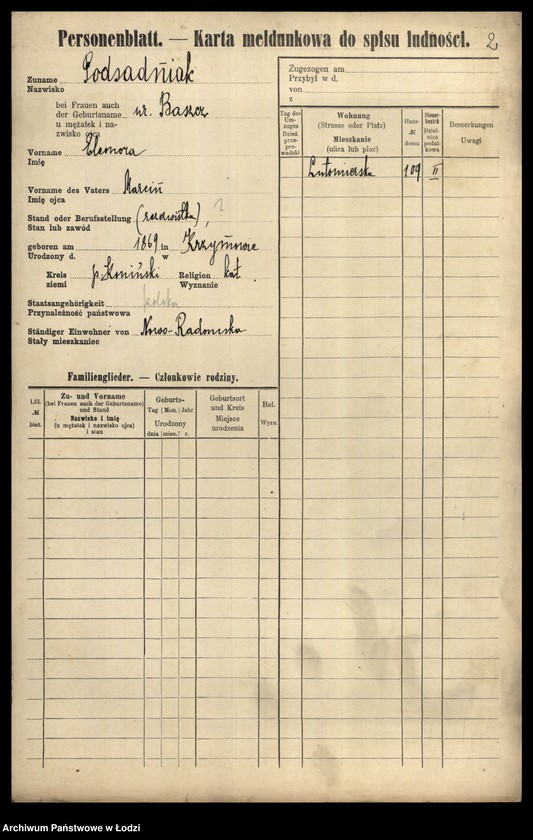 Personenblatt. — Karta meldunkowa do spisu ludności. 2
Zuname Podsadniak
Nazwisko
bei Frauen auch
der Geburtsname ur. Baszcz
u mężatek i na-
zwisko ojca
Vorname Eleonora
Imię
Vorname des Vaters Marcin
Imię ojca
Stand oder Berufsstellung (rozdwistka), ?
Stan lub zawód
geboren am 1869 in Krzymowie
Urodzony d. w
Kreis p. Koniński Religion kat
ziemi Wyznanie
Staatsangehörigkeit polska
Przynależność państwowa
Ständiger Einwohner von Nowo-Radomska
Stały mieszkaniec
Zugezogen am
Przybył w d.
von
z
Tag des Um-zuges Dzień prze-pro-wadzki
Wohnung
(Strasse oder Platz)
Mieszkanie
(ulica lub plac)
Haus-
№
domu
Steuer-bezirk Dziel-nica podat-kowa
Bemerkungen
Uwagi
Lutomierska 109 II
Familienglieder. — Członkowie rodziny.
Lfd.
№
bież.
Zu- und Vorname
(bei Frauen auch der Geburtsname)
und Stand
Nazwisko i imię
(u mężatek i nazwisko ojca)
i stan
Geburts-
Tag Mon. Jahr
Urodzony
dnia mies. r.
Geburtsort
und Kreis
Miejsce
urodzenia
Rel.
Wyzn.
Archiwum Państwowe w Łodzi